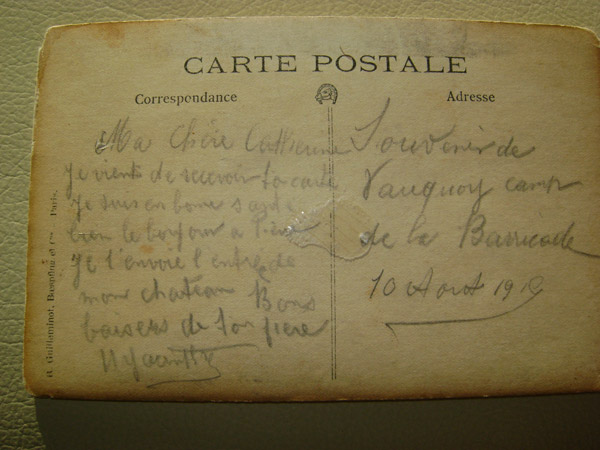 CARTE POSTALE
Correspondance
Adresse
Ma Chère Catherine
je viens de recevoir ta carte
je suis en bonne santé
bien le bonjour a
je t'envoie l'entrée de
mon chateau Bons
baisers de ton père
Hyacinthe
Souvenir de
Vauquoy camp
de la Barricade
10 Aout 191
Paris.